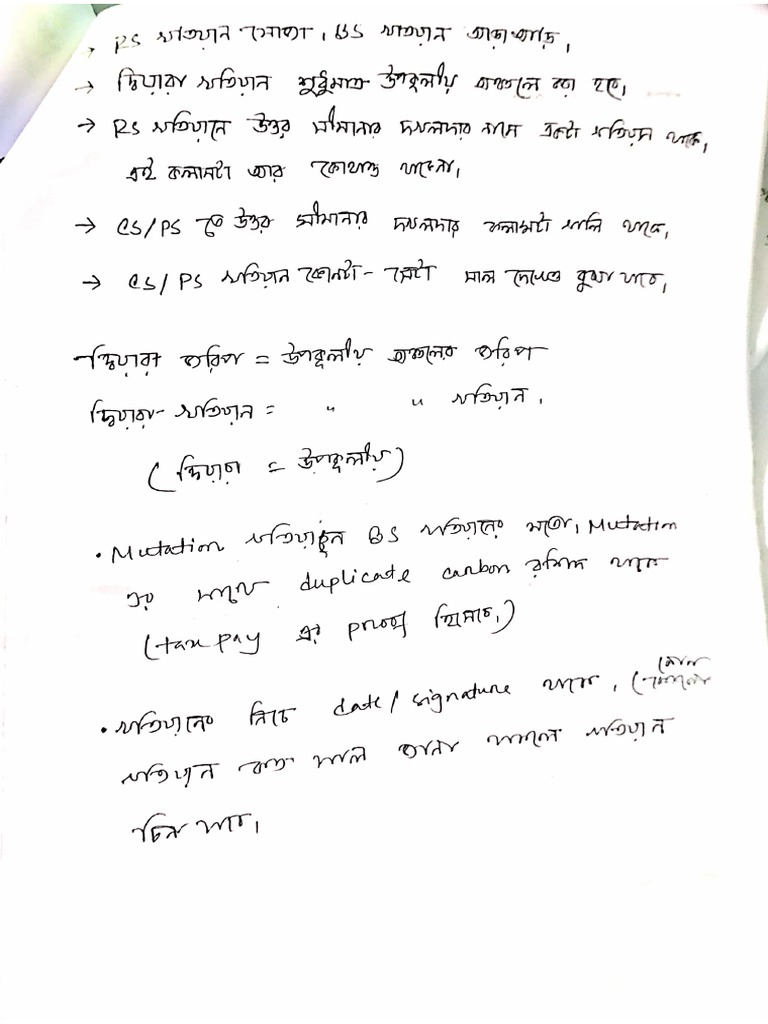 → RS খতিয়ান সোজা, BS খতিয়ান আড়াআড়ি,
→ দিয়ারা খতিয়ান শুধুমাত্র উপকূলীয় অঞ্চলে করা হয়।
→ RS খতিয়ানে উত্তর সীমানার দখলদার নামে একটা খতিয়ান থাকে,
এই কলামটা আর কোথাও থাকেনা।
→ CS/PS তে উত্তর সীমানার দখলদার কলামটা খালি থাকে,
→ CS/PS খতিয়ান কোনটা - সেটা সাল দেখেও বুঝা যাবে,
দিয়ারা জরিপ = উপকূলীয় অঞ্চলের জরিপ
দিয়ারা খতিয়ান = " " খতিয়ান,
(দিয়ারা = উপকূলীয়)
• Mutation খতিয়ান BS খতিয়ানের মতো, Mutation
এর সাথে duplicate carbon রশিদ থাকে
(tax pay এর proof হিসেবে,)
• খতিয়ানের নিচে date/signature থাকে, (কোন
খতিয়ান কত সালে জানা থাকলে খতিয়ান
চিনা যাবে,